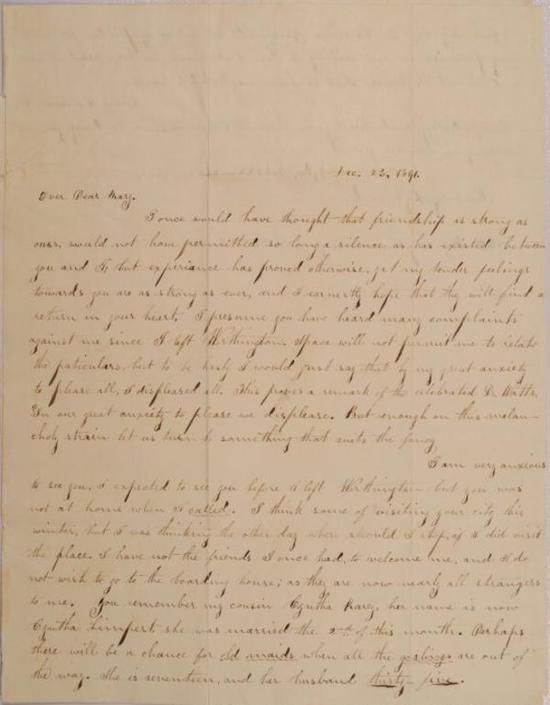 Dec. 22, 1841.
Ever Dear Mary.
I once would have thought that friendship as strong as
ours, would not have permitted so long a silence as has existed between
you and I, but experiance has proved otherwise, yet my tender feelings
towards you are as strong as ever, and I earnestly hope that they will find a
return in your heart. I presume you have heard many complaints
against me since I left Worthington. Space will not permit me to relate
the paticulars, but to be I would just say that by my great anxiety
to please all, I displeased all. This proves a remark of the celebrated Dr Watts,
In our great anxiety to please we displease. But enough on this melan-
choly strain let us turn to something that suits the fancy
I am very anxious
to see you, I expected to see you before I left Worthington but you was
not at home when I called. I think some of visiting your city this
winter, but I was thinking the other day where should I stop, if I did visit
the place. I have not the friends I once had, to welcome me, and I do
not wish to go to the boarding house; as they are now nearly all strangers
to me. You remember my cousin Cyntha her name is now
Cyntha she was married the 2nd of this month. Perhaps
there will be a chance for old maids when all the goslings are out of
the way. She is seventeen, and her husband thirty-five.